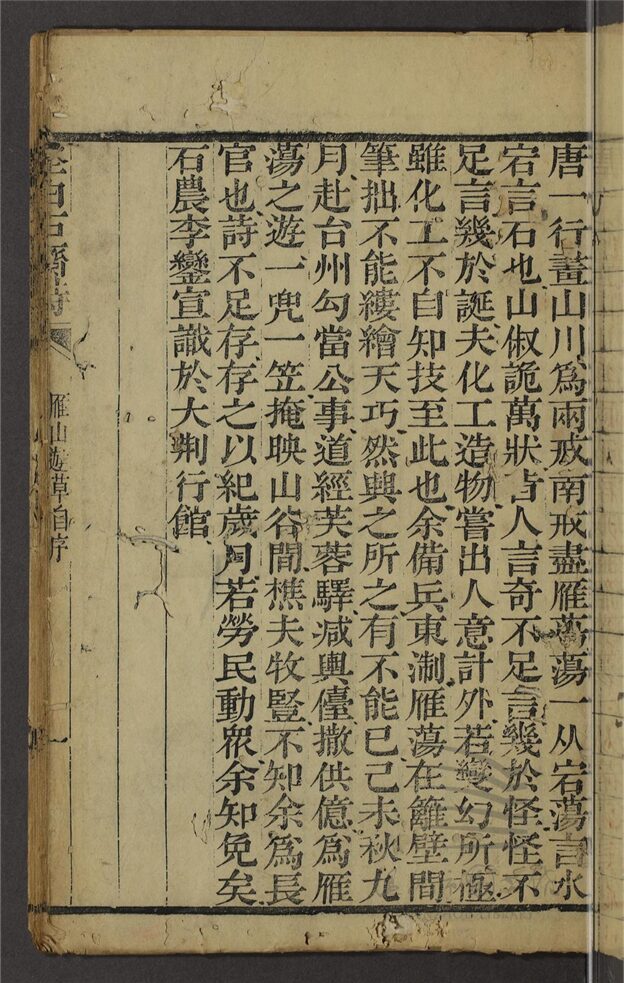 唐一行畫山川爲兩戒南戒盡雁蕩蕩一从宕蕩言水
宕言石也山俶詭萬狀古人言奇不足言幾於怪怪不
足言幾於誕夫化工造物嘗出人意計外若變幻所極
雖化工不自知技至此也余備兵東淛雁蕩在籬壁間
筆拙不能縷繪天巧然興之所之有不能已己未秋九
月赴台州勾當公事道經芙蓉驛減輿儓撤供億爲雁
蕩之遊一兜一笠掩映山谷間樵夫牧豎不知余爲長
官也詩不足存存之以紀歲月若勞民動眾余知免矣
石農李鑾宣識於大荆行館
白石齋詩
雁山遊草自序
一